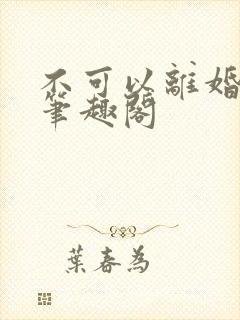 不可以離婚
筆趣閣
葉春為